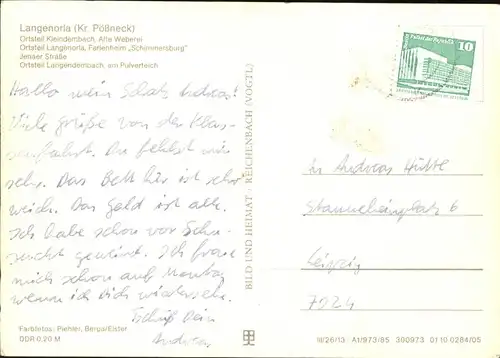 Langenorla (Kr. Pößneck)
Ortsteil Kleindembach, Alte Weberei
Ortsteil Langenorla, Ferienheim „Schimmersburg"
Jenaer Straße
Ortsteil Langendembach, am Pulverteich
Hallo mein Schatz Andreas!
Viele Grüße von der Klas-
senfahrt. Du fehlst mir
sehr. Das Bett hier ist sehr
weich. Das Geld ist alle.
Ich habe schon vor Sehn-
sucht geweint. Ich freue
mich schon auf Montag
wenn ich Dich wiedersehe.
Tschüß Dein
Andreas
Farbfotos: Piehler, Berga/Elster
DDR 0,20 M
BILD UND HEIMAT · REICHENBACH (VOGTL)
10
An Andreas
6
Leipzig
7024
III/26/13 A1/973/85 300973 01 10 0284/05